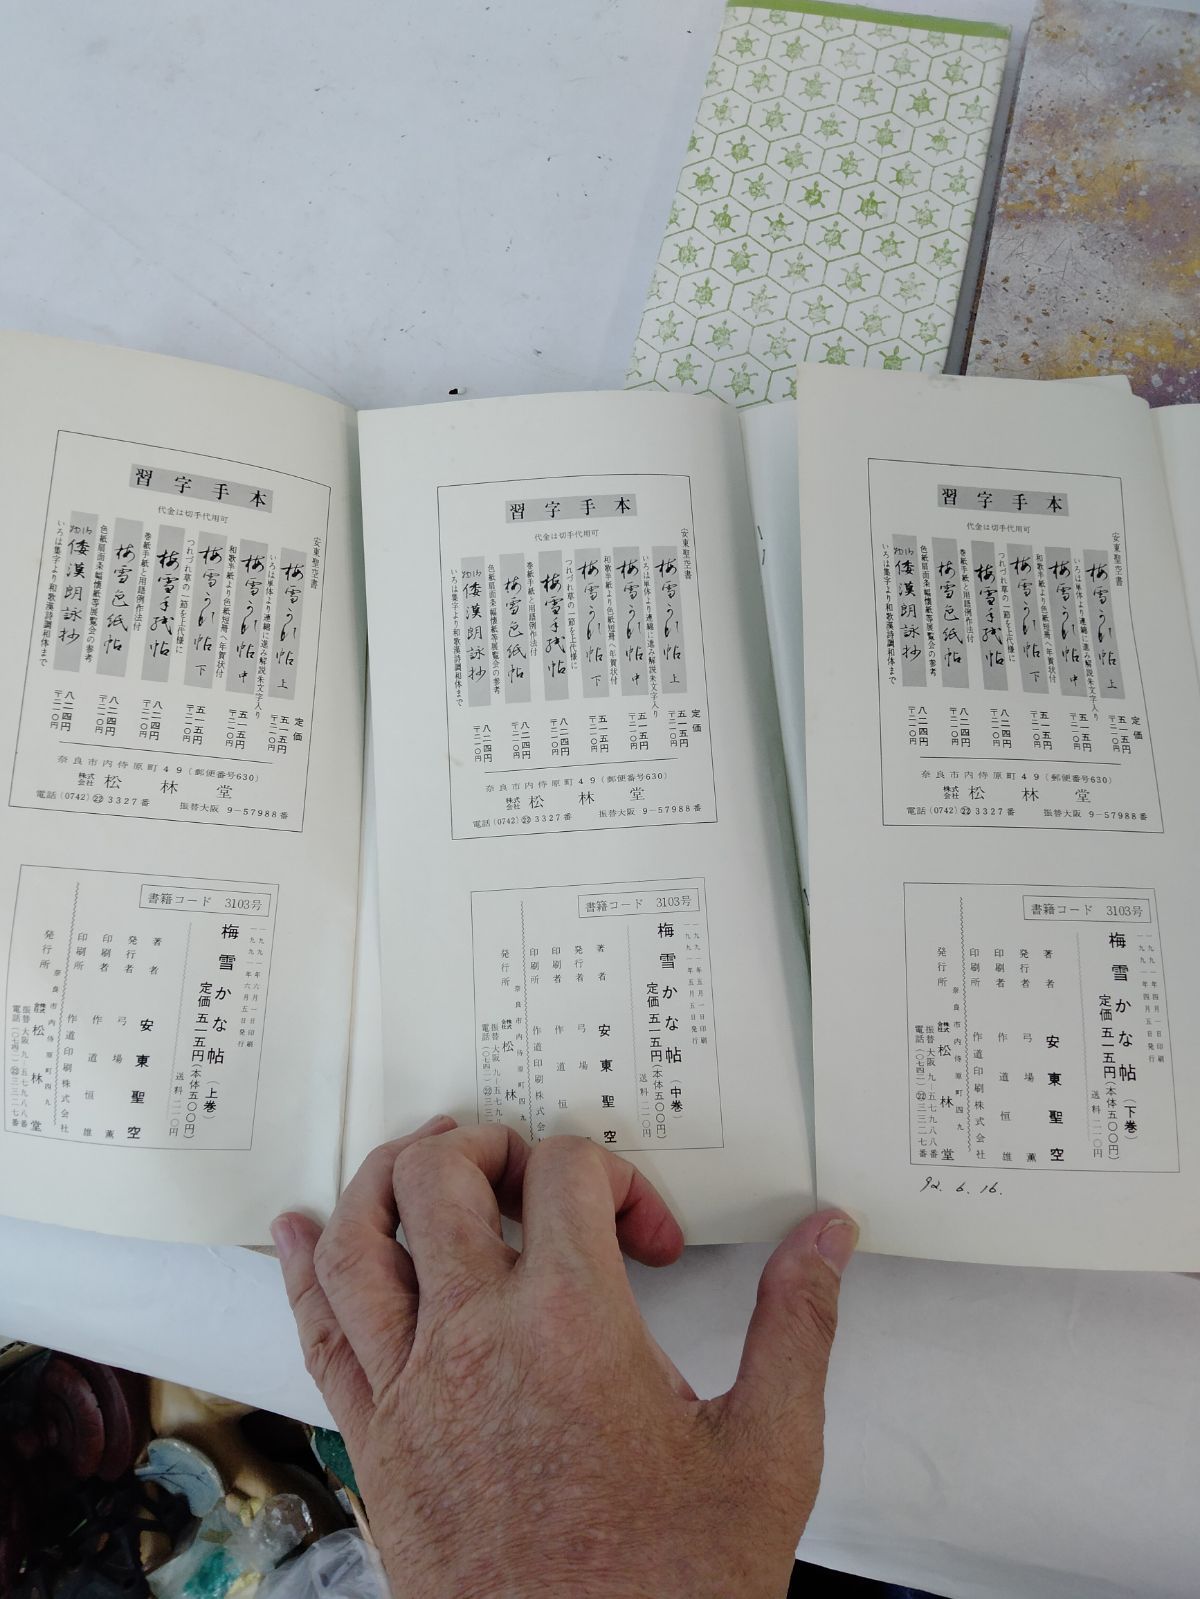 習字手本
代金は切手代用可
安東聖空書
梅雪かな帖 上
いろは単体より連綿に進み解説朱文字入り
梅雪かな帖 中
和歌手紙より色紙短冊へ年賀状付
梅雪かな帖 下
つれづれ草の一節を上代様に
梅雪手紙帖
巻紙手紙と用語例作法付
梅雪色紙帖
色紙扇面条幅懐紙等展覧会の参考
倭漢朗詠抄
いろは集字より和歌漢詩調和体まで
定価
五一五円
〒二一〇円
五一五円
〒二一〇円
五一五円
〒二一〇円
八二四円
〒二一〇円
八二四円
〒二一〇円
八二四円
〒二一〇円
奈良市内侍原町49(郵便番号630)
株式会社 松林堂
電話(0742)㉒3327番 振替大阪 9-57988番
書籍コード 3103号
一九九一年六月一日印刷
一九九一年六月五日発行
梅雪かな帖(上巻)
定価 五一五円(本体五〇〇円)
送料 二一〇円
著者 安東聖空
発行者 弓場薫
印刷者 作道恒雄
印刷所 作道印刷株式会社
発行所 奈良市内侍原町四九
株式会社 松林堂
振替大阪 九-五七九八八番
電話(〇七四二)㉒三三二七番
習字手本
代金は切手代用可
安東聖空書
梅雪かな帖 上
いろは単体より連綿に進み解説朱文字入り
梅雪かな帖 中
和歌手紙より色紙短冊へ年賀状付
梅雪かな帖 下
つれづれ草の一節を上代様に
梅雪手紙帖
巻紙手紙と用語例作法付
梅雪色紙帖
色紙扇面条幅懐紙等展覧会の参考
倭漢朗詠抄
いろは集字より和歌漢詩調和体まで
定価
五一五円
〒二一〇円
五一五円
〒二一〇円
五一五円
〒二一〇円
八二四円
〒二一〇円
八二四円
〒二一〇円
八二四円
〒二一〇円
奈良市内侍原町49(郵便番号630)
株式会社 松林堂
電話(0742)㉒3327番 振替大阪 9-57988番
書籍コード 3103号
一九九一年五月一日印刷
一九九一年五月五日発行
梅雪かな帖(中巻)
定価 五一五円(本体五〇〇円)
送料 二一〇円
著者 安東聖空
発行者 弓場
印刷者 作道恒
印刷所 作道印刷株式会
発行所 奈良市内侍原町四九
株式会社 松林
振替大阪 九-五七九八八番
電話(〇七四二)㉒三三二七番
習字手本
代金は切手代用可
安東聖空書
梅雪かな帖 上
いろは単体より連綿に進み解説朱文字入り
梅雪かな帖 中
和歌手紙より色紙短冊へ年賀状付
梅雪かな帖 下
つれづれ草の一節を上代様に
梅雪手紙帖
巻紙手紙と用語例作法付
梅雪色紙帖
色紙扇面条幅懐紙等展覧会の参考
倭漢朗詠抄
いろは集字より和歌漢詩調和体まで
定価
五一五円
〒二一〇円
五一五円
〒二一〇円
五一五円
〒二一〇円
八二四円
〒二一〇円
八二四円
〒二一〇円
八二四円
〒二一〇円
奈良市内侍原町49(郵便番号630)
株式会社 松林堂
電話(0742)㉒3327番 振替大阪 9-57988番
書籍コード 3103号
一九九一年四月一日印刷
一九九一年四月五日発行
梅雪かな帖(下巻)
定価 五一五円(本体五〇〇円)
送料 二一〇円
著者 安東聖空
発行者 弓場薫
印刷者 作道恒雄
印刷所 作道印刷株式会社
発行所 奈良市内侍原町四九
株式会社 松林堂
振替大阪 九-五七九八八番
電話(〇七四二)㉒三三二七番
92. 6. 16.